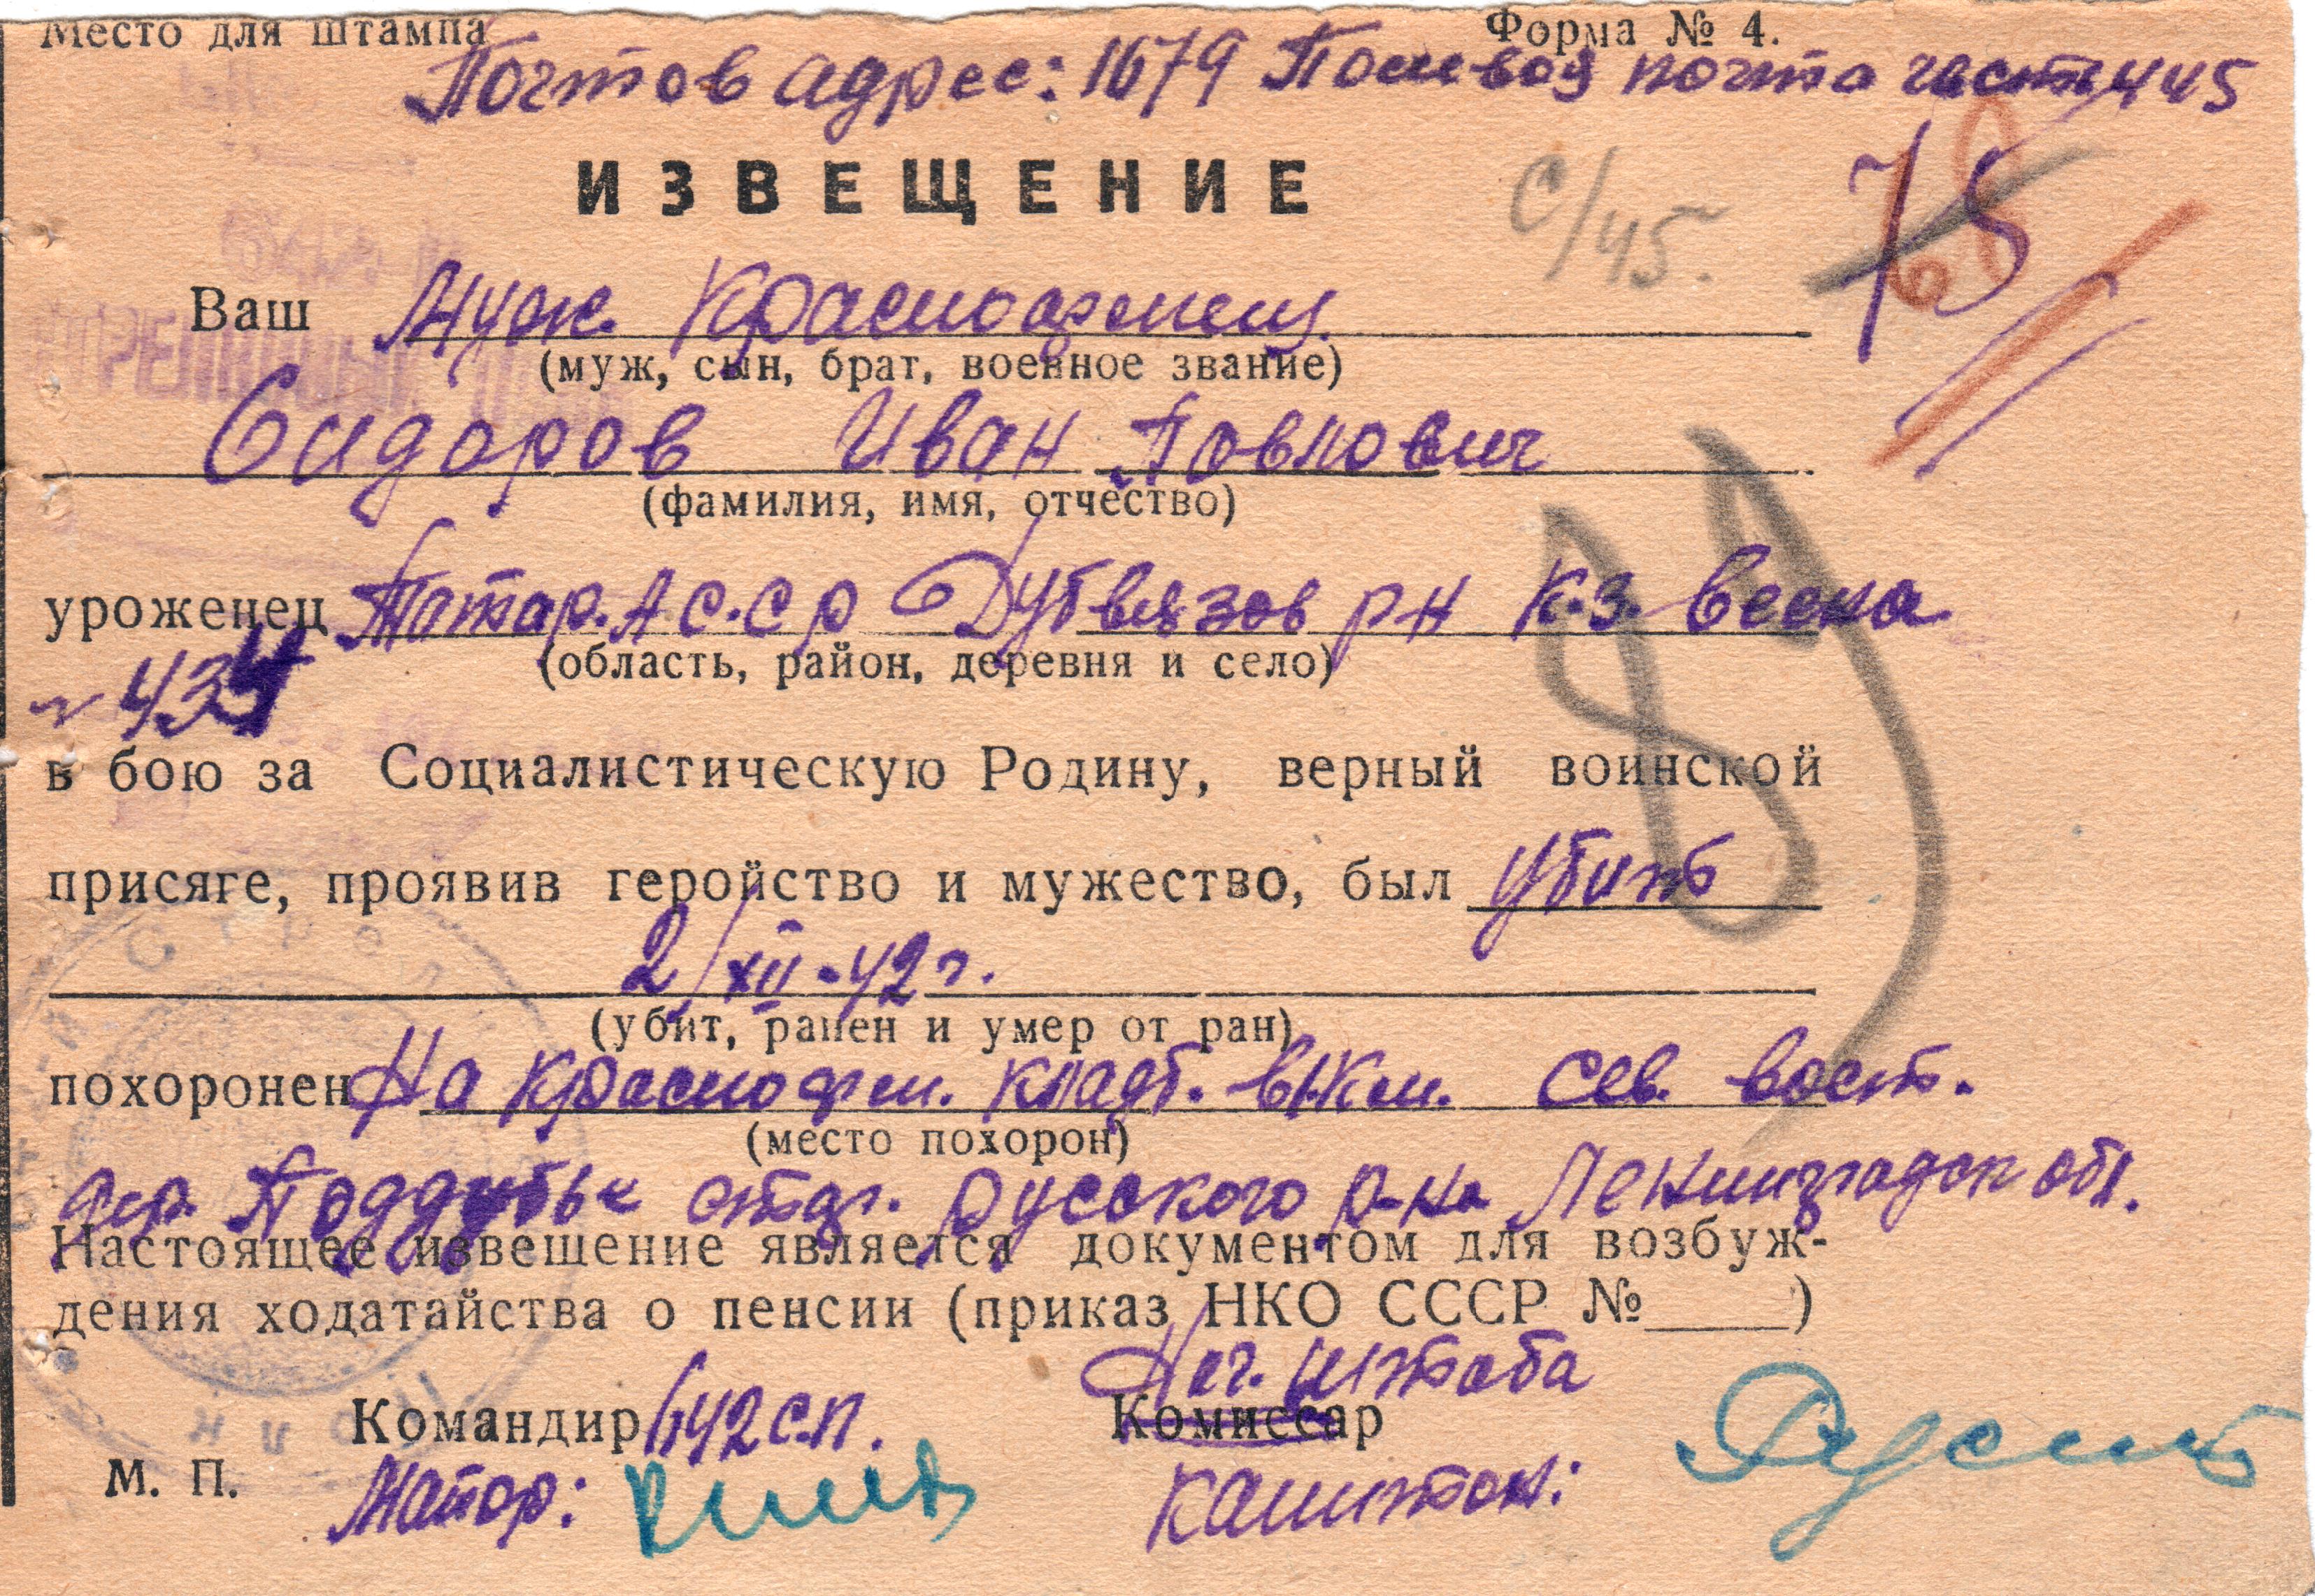 Место для штампа
Форма № 4.
Почтов адрес: 1679 Полевая почта часть 445
ИЗВЕЩЕНИЕ
С/45.
75
68
Ваш Муж Красноармеец
(муж, сын, брат, военное звание)
Сидоров Иван Повлович
(фамилия, имя, отчество)
уроженец Татар. А С.С р Дубвязов р н К.з. Весна
(область, район, деревня и село)
№ 434
89
в бою за Социалистическую Родину, верный воинской
присяге, проявив геройство и мужество, был убит
2/XII-42 г.
(убит, ранен и умер от ран)
похоронен На Красноарм. кладб. в 1 км. сев. вост.
(место похорон)
дер. Поддубье русского р-на Ленинградск обл.
Настоящее извещение является документом для возбуж-
дения ходатайства о пенсии (приказ НКО СССР №____)
Нач. штаба
Командир 1642 с.п. Комиссар
М. П. Майор: Капитан: